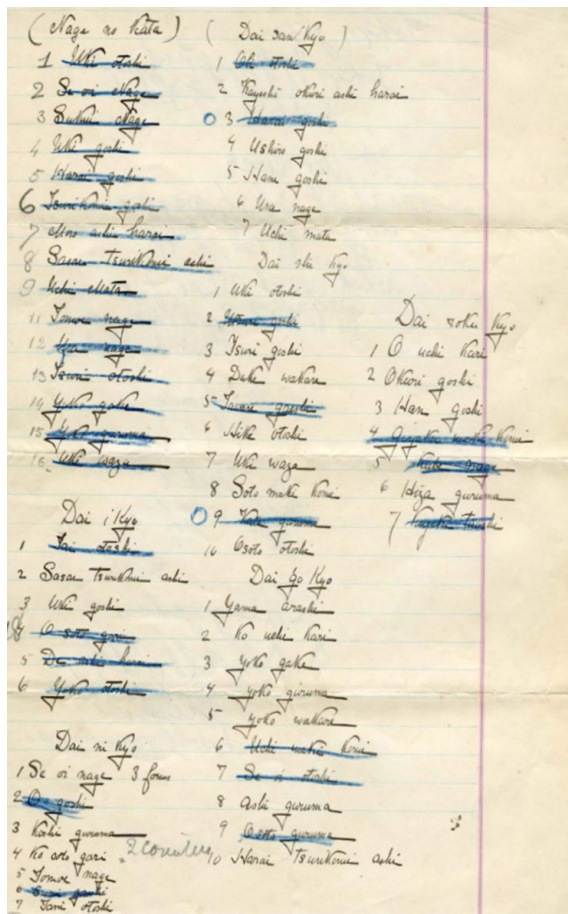 (Nage no Kata)
1 Uki otoshi
2 Se oi Nage
3 Sukui Nage
4 Uki goshi
5 Harai goshi
6 Tsurikomi goshi
7 Moro ashi harai
8 Sasae Tsurikomi ashi
9 Uchi Mata
11 Tomoe nage
12 Ura nage
13 Tsuri otoshi
14 Yoko gake
15 Yoko guruma
16 Uki waza
Dai i Kyo
1 Tai otoshi
2 Sasae Tsurikomi ashi
3 Uki goshi
4 O soto gari
5 De ashi harai
6 Yoko otoshi
Dai ni Kyo
1 Se oi nage 3 forms
2 O goshi
3 Koshi guruma
4 Ko soto gari 2 counters
5 Tomoe nage
6
7 Tani otoshi
(Dai san Kyo)
1 otoshi
2 Kayeshi okuri ashi harai
3 Harai goshi
4 Ushiro goshi
5 Hane goshi
6 Ura nage
7 Uchi mata
Dai shi Kyo
1 Uki otoshi
2 Utsuri goshi
3 Tsuri goshi
4 Daki wakare
5
6 Hiki otoshi
7 Uki waza
8 Soto maki komi
9 Kata guruma
10 Osoto otoshi
Dai go Kyo
1 Yama arashi
2 Ko uchi kari
3 Yoko gake
4 Yoko guruma
5 Yoko wakare
6 Uchi maki komi
7 Se oi otoshi
8 Ashi guruma
9 Osoto guruma
10 Harai Tsurikomi ashi
Dai roku Kyo
1 O uchi kari
2 Okuri goshi
3 Han goshi
4 Gyaku maki komi
5 nage
6 Hiza guruma
7